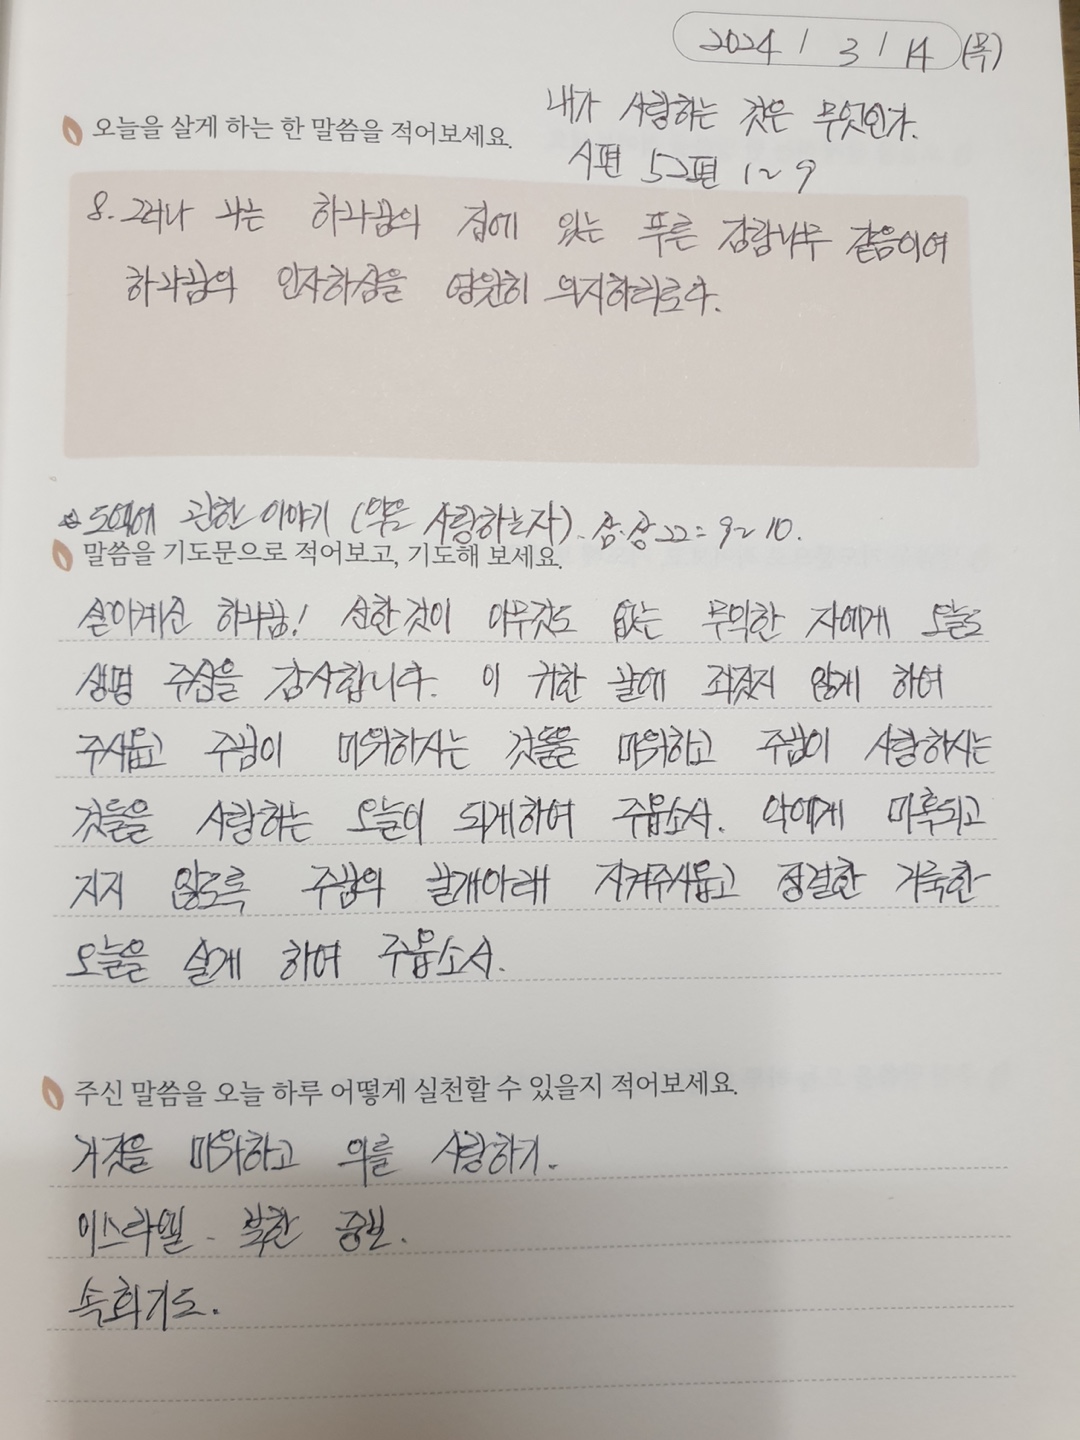 2024 / 3 / 14 (목)
내가 사랑하는 것은 무엇인가.
오늘을 살게 하는 한 말씀을 적어보세요.
시편 52편 1~9
8. 그러나 나는 하나님의 집에 있는 푸른 감람나무 같음이여
하나님의 인자하심을 영원히 의지하리로다.
도엑에 관한 이야기 (악을 사랑하는자). 삼.상 22:9~10.
말씀을 기도문으로 적어보고, 기도해 보세요.
살아계신 하나님! 선한것이 아무것도 없는 무익한 자에게 오늘도
생명 주심을 감사합니다. 이 귀한 날에 죄짓지 않게 하여
주시옵고 주님이 미워하시는 것들을 미워하고 주님이 사랑하시는
것들을 사랑하는 오늘이 되게하여 주옵소서. 악에게 미혹되고
지지 않도록 주님의 날개아래 지켜주시옵고 정결한 거룩한
오늘을 살게 하여 주옵소서.
주신 말씀을 오늘 하루 어떻게 실천할 수 있을지 적어보세요.
거짓을 미워하고 의를 사랑하기.
이스라엘 - 북한 중보.
속회기도.